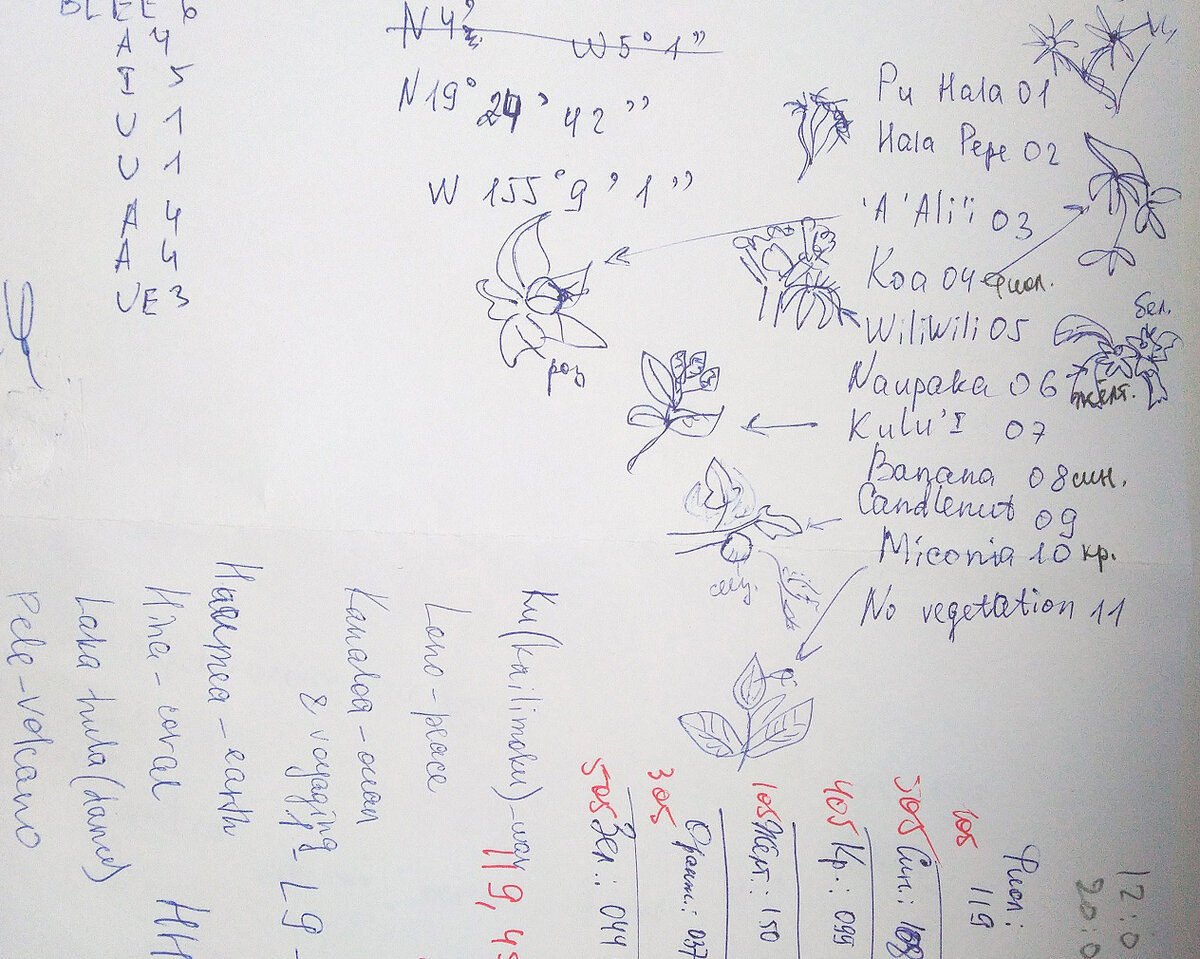 BLEE 6
A 4
I 5
U 1
U 1
A 4
A 4
UE 3
N 4°
W 5° 1"
N 19° 24' 42''
W 155° 9' 1''
Pu Hala 01
Hala Pepe 02
'A 'Ali'i 03
Koa 04 фиол.
WiliWili 05
Naupaka 06
Kulu'I 07
Banana 08 син.
Candlenut 09
Miconia 10 кр.
No vegetation 11
роз
бел.
жёлт.
Ku(kailimoku)-war
Lono-peace
Kanaloa-ocean
& voyaging
Haumea-earth
Hina-coral
Laka hula(dance)
Pele-Volcano
12:0
20:0
Фиол:
119
105
505 Син.:
405 Кр.: 099
105 Жёлт.: 150
305 Оранж.: 037
505 Зел.: 044